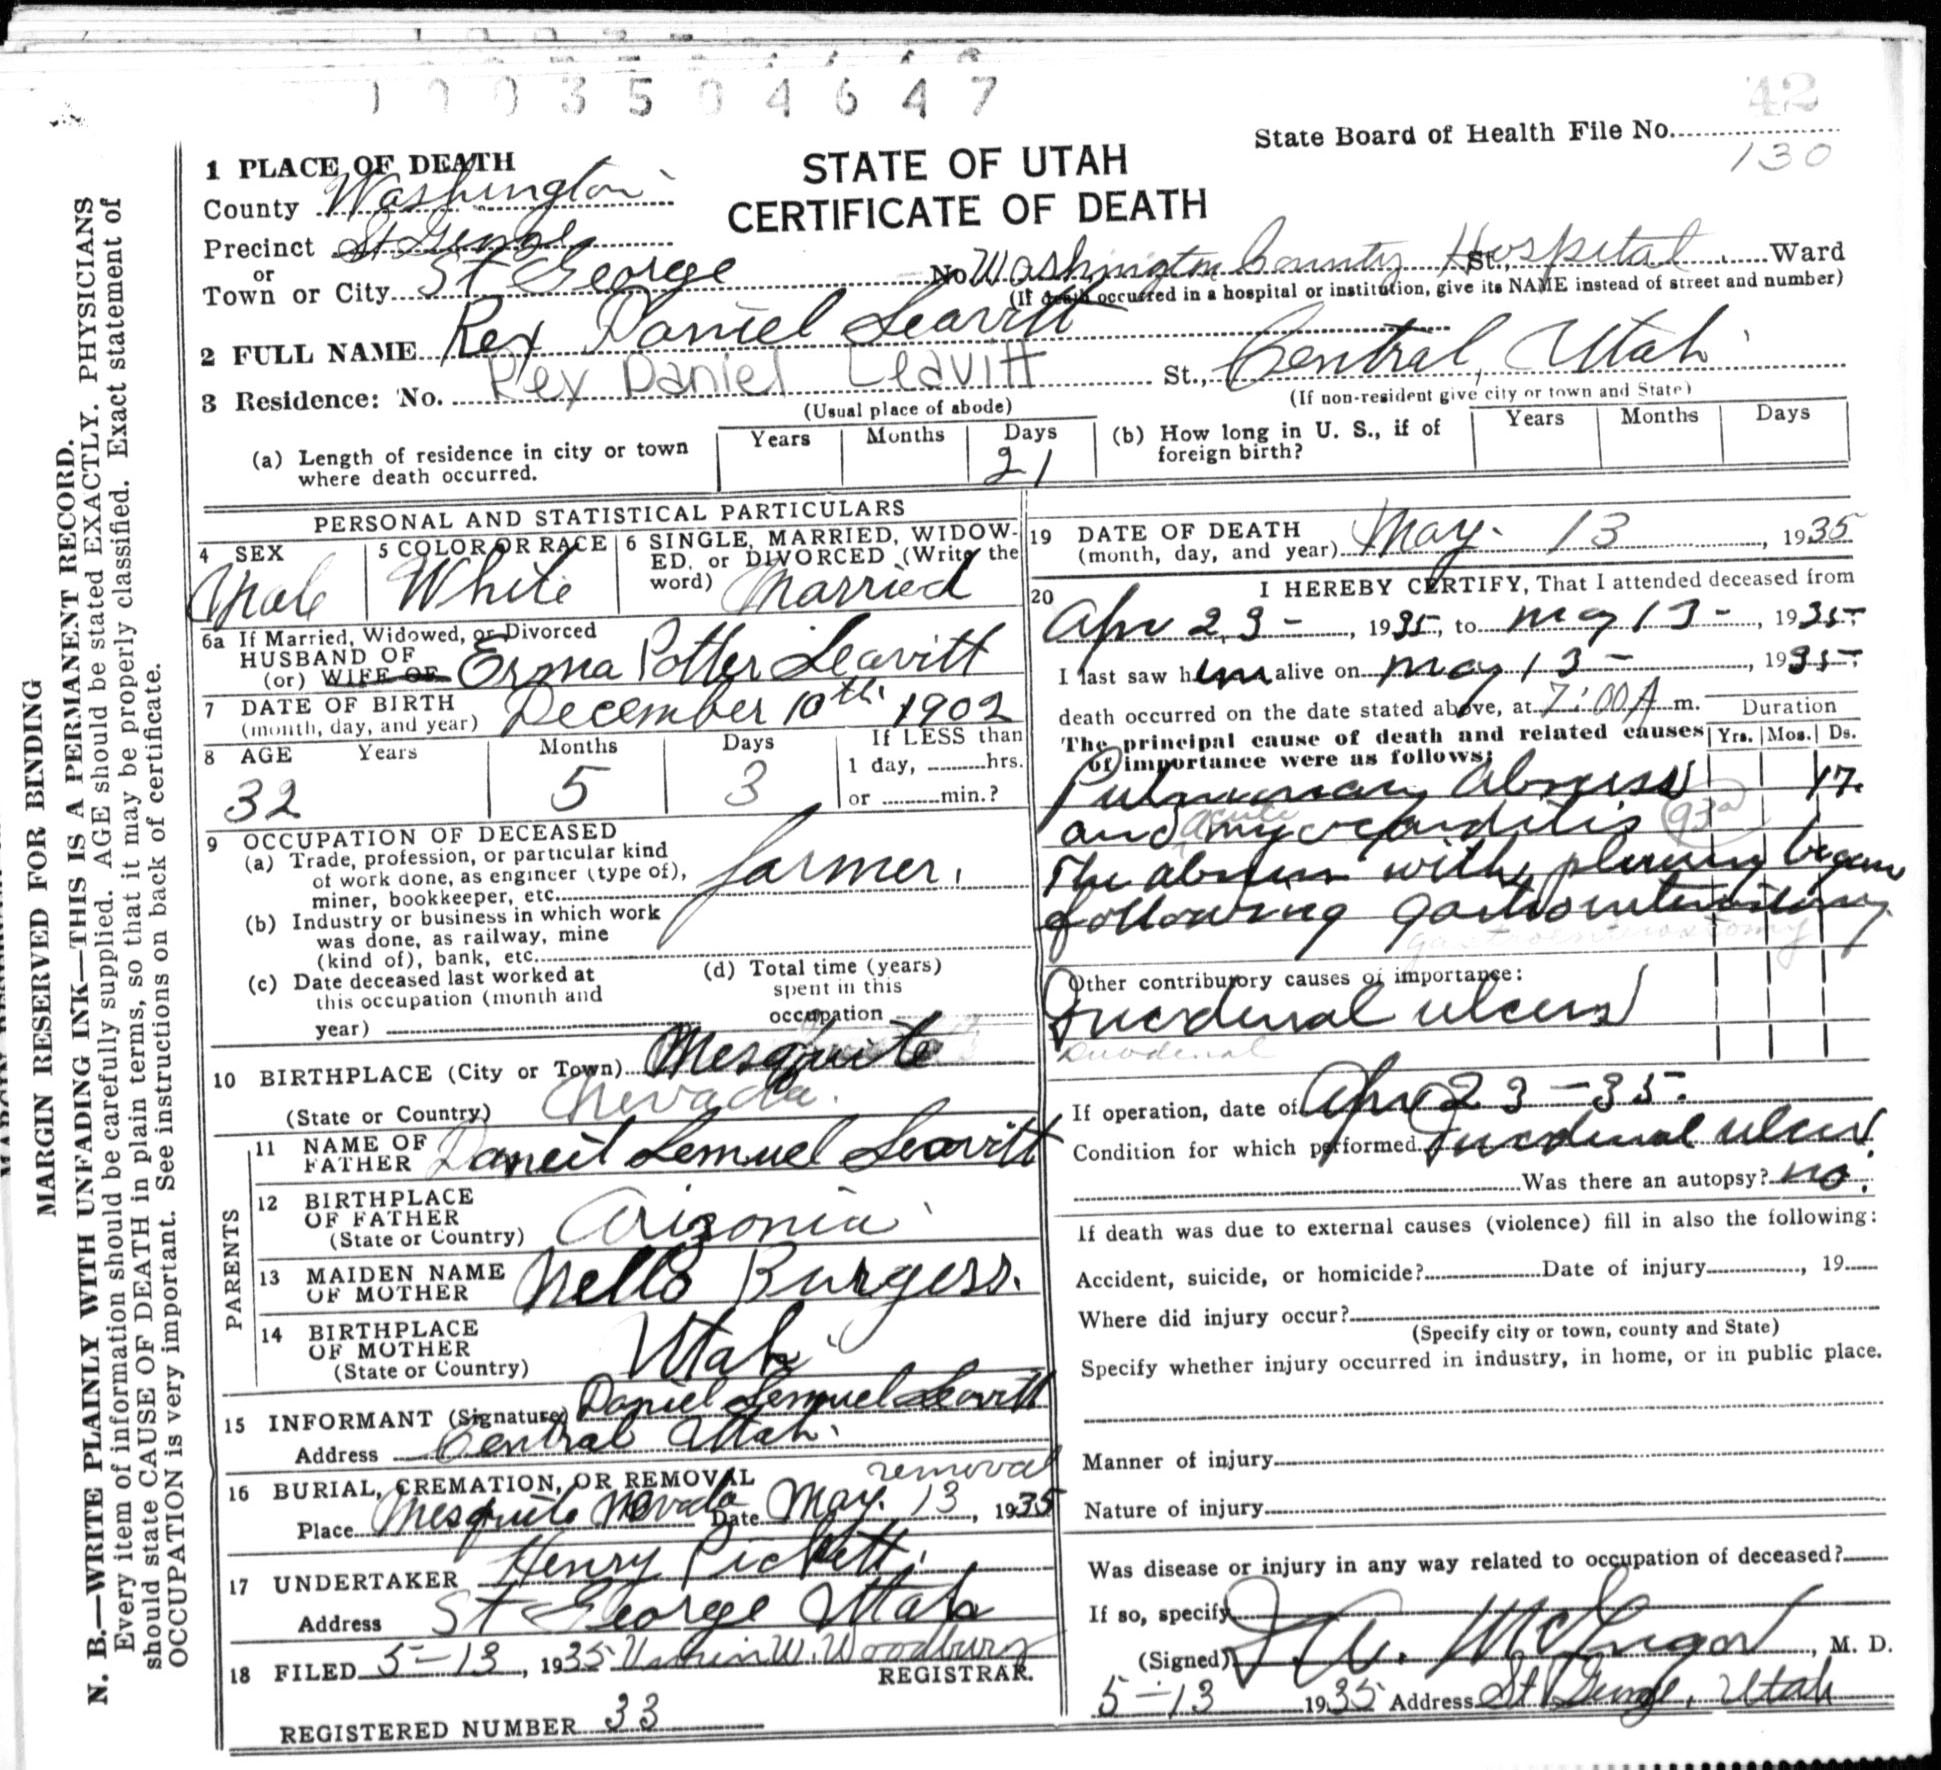 1003504647
42
State Board of Health File No.
130
STATE OF UTAH
CERTIFICATE OF DEATH
1 PLACE OF DEATH
County Washington
Precinct St George
or
Town or City St George No. Washington County Hospital St., Ward
(If death occurred in a hospital or institution, give its NAME instead of street and number)
2 FULL NAME Rex Daniel Leavitt
Rex Daniel Leavitt
3 Residence: No. St., Central, Utah
(Usual place of abode) (If non-resident give city or town and State)
(a) Length of residence in city or town where death occurred. Years Months Days 21
(b) How long in U. S., if of foreign birth? Years Months Days
PERSONAL AND STATISTICAL PARTICULARS
4 SEX Male
5 COLOR OR RACE White
6 SINGLE, MARRIED, WIDOWED, or DIVORCED (Write the word) Married
6a If Married, Widowed, or Divorced
HUSBAND OF
(or) WIFE OF Erma Potter Leavitt
7 DATE OF BIRTH
(month, day, and year) December 10th 1902
8 AGE Years Months Days If LESS than
32 5 3 1 day, hrs.
or min.?
9 OCCUPATION OF DECEASED
(a) Trade, profession, or particular kind
of work done, as engineer (type of),
miner, bookkeeper, etc. farmer.
(b) Industry or business in which work
was done, as railway, mine
(kind of), bank, etc.
(c) Date deceased last worked at
this occupation (month and
year)
(d) Total time (years)
spent in this
occupation
10 BIRTHPLACE (City or Town) Mesquite
(State or Country) Nevada.
PARENTS
11 NAME OF
FATHER Daneil Lemuel Leavitt
12 BIRTHPLACE
OF FATHER
(State or Country) Arizonia
13 MAIDEN NAME
OF MOTHER Nella Burgess.
14 BIRTHPLACE
OF MOTHER
(State or Country) Utah
15 INFORMANT (Signature) Daniel Lemuel Leavitt
Address Central Utah.
16 BURIAL, CREMATION, OR REMOVAL removal
Place Mesquite Nevada Date May 13, 1935
17 UNDERTAKER Henry Pickett
Address St George Utah
18 FILED 5-13, 1935 W. Woodbury
REGISTRAR.
REGISTERED NUMBER 33
19 DATE OF DEATH
(month, day, and year) May 13, 1935
20 I HEREBY CERTIFY, That I attended deceased from
Apr 23-, 1935, to May 13-, 1935-
I last saw him alive on May 13-, 1935-
death occurred on the date stated above, at 7:00 A m.
Duration
The principal cause of death and related causes Yrs. Mos. Ds.
of importance were as follows:
Pulmonary Abscess 17.
acute
and myocarditis 93a
The abscess with pleurisy began
following gastroenterostomy
gastroenterostomy
Other contributory causes of importance:
Duodenal ulcers
Duodenal
If operation, date of Apr 23-35.
Condition for which performed Duodenal ulcer
Was there an autopsy? no.
If death was due to external causes (violence) fill in also the following:
Accident, suicide, or homicide? Date of injury, 19
Where did injury occur?
(Specify city or town, county and State)
Specify whether injury occurred in industry, in home, or in public place.
Manner of injury
Nature of injury
Was disease or injury in any way related to occupation of deceased?
If so, specify
(Signed) McGregor, M. D.
5-13 1935 Address St George, Utah
MARGIN RESERVED FOR BINDING
N. B.—WRITE PLAINLY WITH UNFADING INK—THIS IS A PERMANENT RECORD.
Every item of information should be carefully supplied. AGE should be stated EXACTLY. PHYSICIANS
should state CAUSE OF DEATH in plain terms, so that it may be properly classified. Exact statement of
OCCUPATION is very important. See instructions on back of certificate.